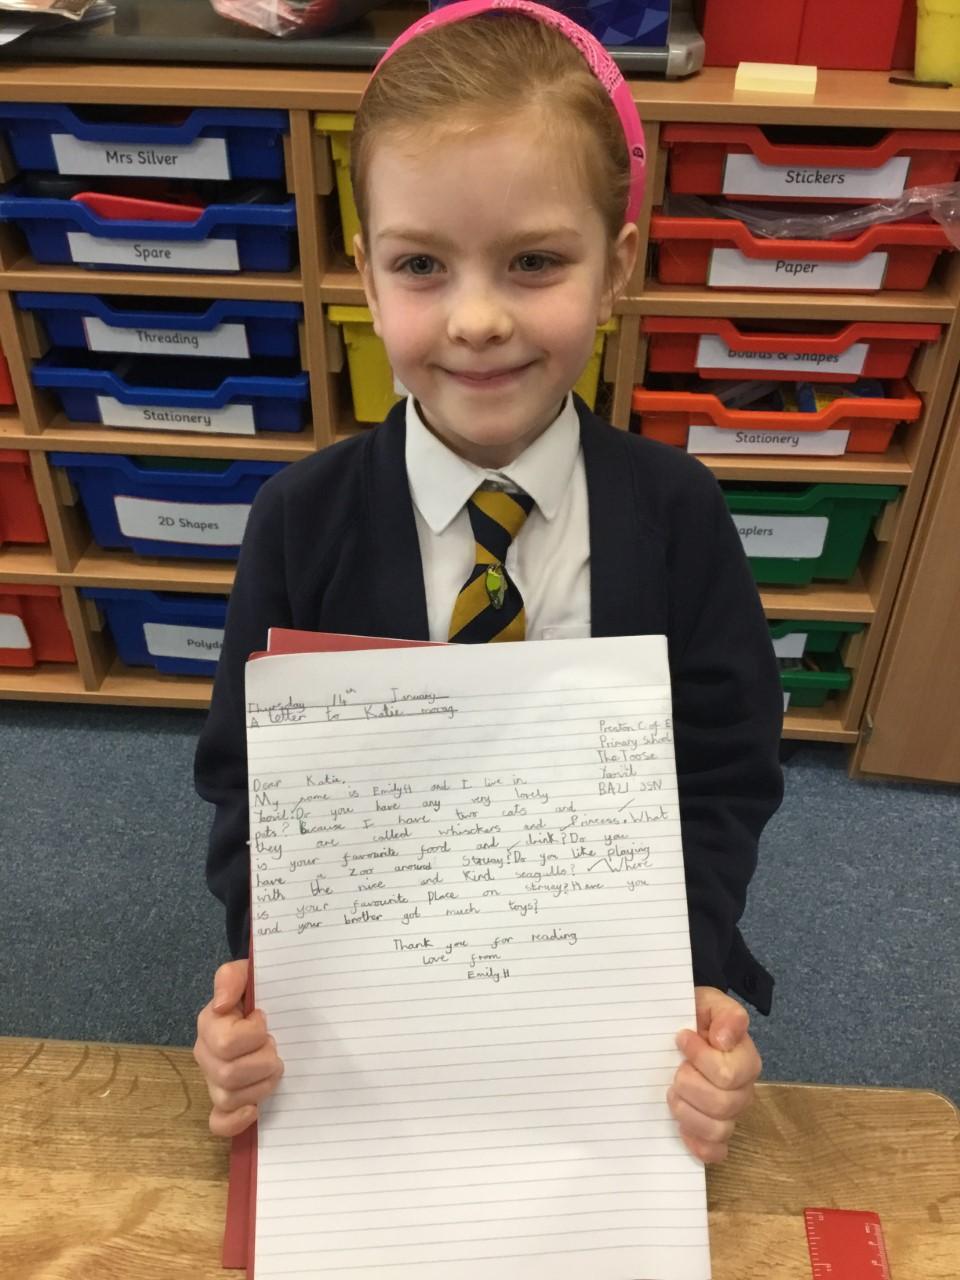 Mrs Silver
Spare
Threading
Stationery
2D Shapes
Polyd
Stickers
Paper
Boards & Shapes
Stationery
aplers
Thursday 14th January
A letter to Katie morag
Preston C of E
Primary School
The Toose
Yeovil
BA21 3SN
Dear Katie,
My name is Emily H and I live in
Yeovil. Do you have any very lovely
pets? Because I have two cats and
they are called whisckers and Princess. What
is your favourite food and drink? Do you
have a zoo around Struay? Do you like playing
with the nice and kind seagulls? Where
is your favourite place on struay? Have you
and your brother got much toys?
Thank you for reading
Love from
Emily H